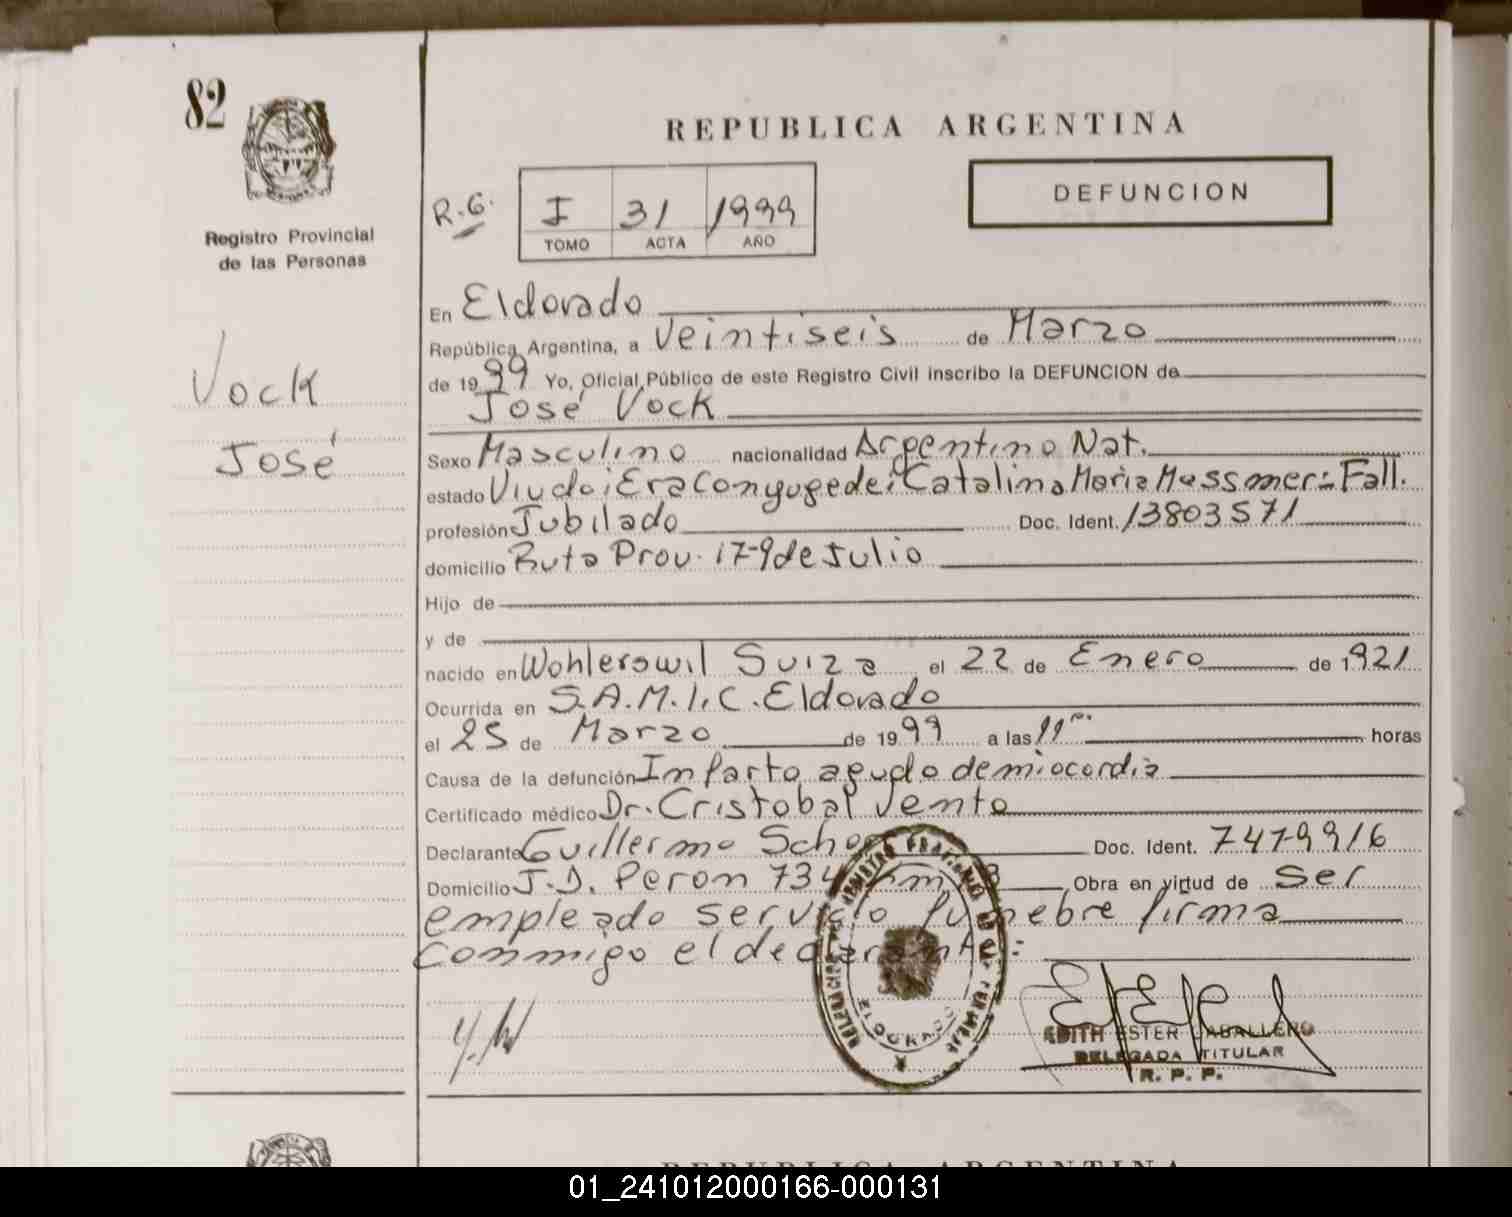 82
REPUBLICA ARGENTINA
DEFUNCION
R.G. I 31 1999
TOMO ACTA AÑO
Registro Provincial
de las Personas
Vock
José
En Eldorado
República Argentina, a Veintiseis de Marzo
de 1999 Yo, Oficial Público de este Registro Civil inscribo la DEFUNCION de
José Vock
Sexo Masculino nacionalidad Argentino Nat.
estado Viudo; Era Conyuge de: Catalina Maria Messmer: Fall.
profesión Jubilado Doc. Ident. 13803571
domicilio Ruta Prov. 17-9 de Julio
Hijo de
y de
nacido en Wohlerswil Suiza el 22 de Enero de 1921
Ocurrida en S.A.M.I.C. Eldorado
el 25 de Marzo de 1999 a las 11 horas
Causa de la defunción Infarto agudo de miocardia
Certificado médico Dr. Cristobal Vento
Declarante Guillermo Doc. Ident. 7479916
Domicilio J.D. Peron Obra en virtud de Ser
empleado servicio funebre firma
conmigo el declarante:
ELDORADO
EDITH ESTER CABALLERO
DELEGADA TITULAR
R. P. P.
REPUBLICA ARGENTINA
01_241012000166-000131